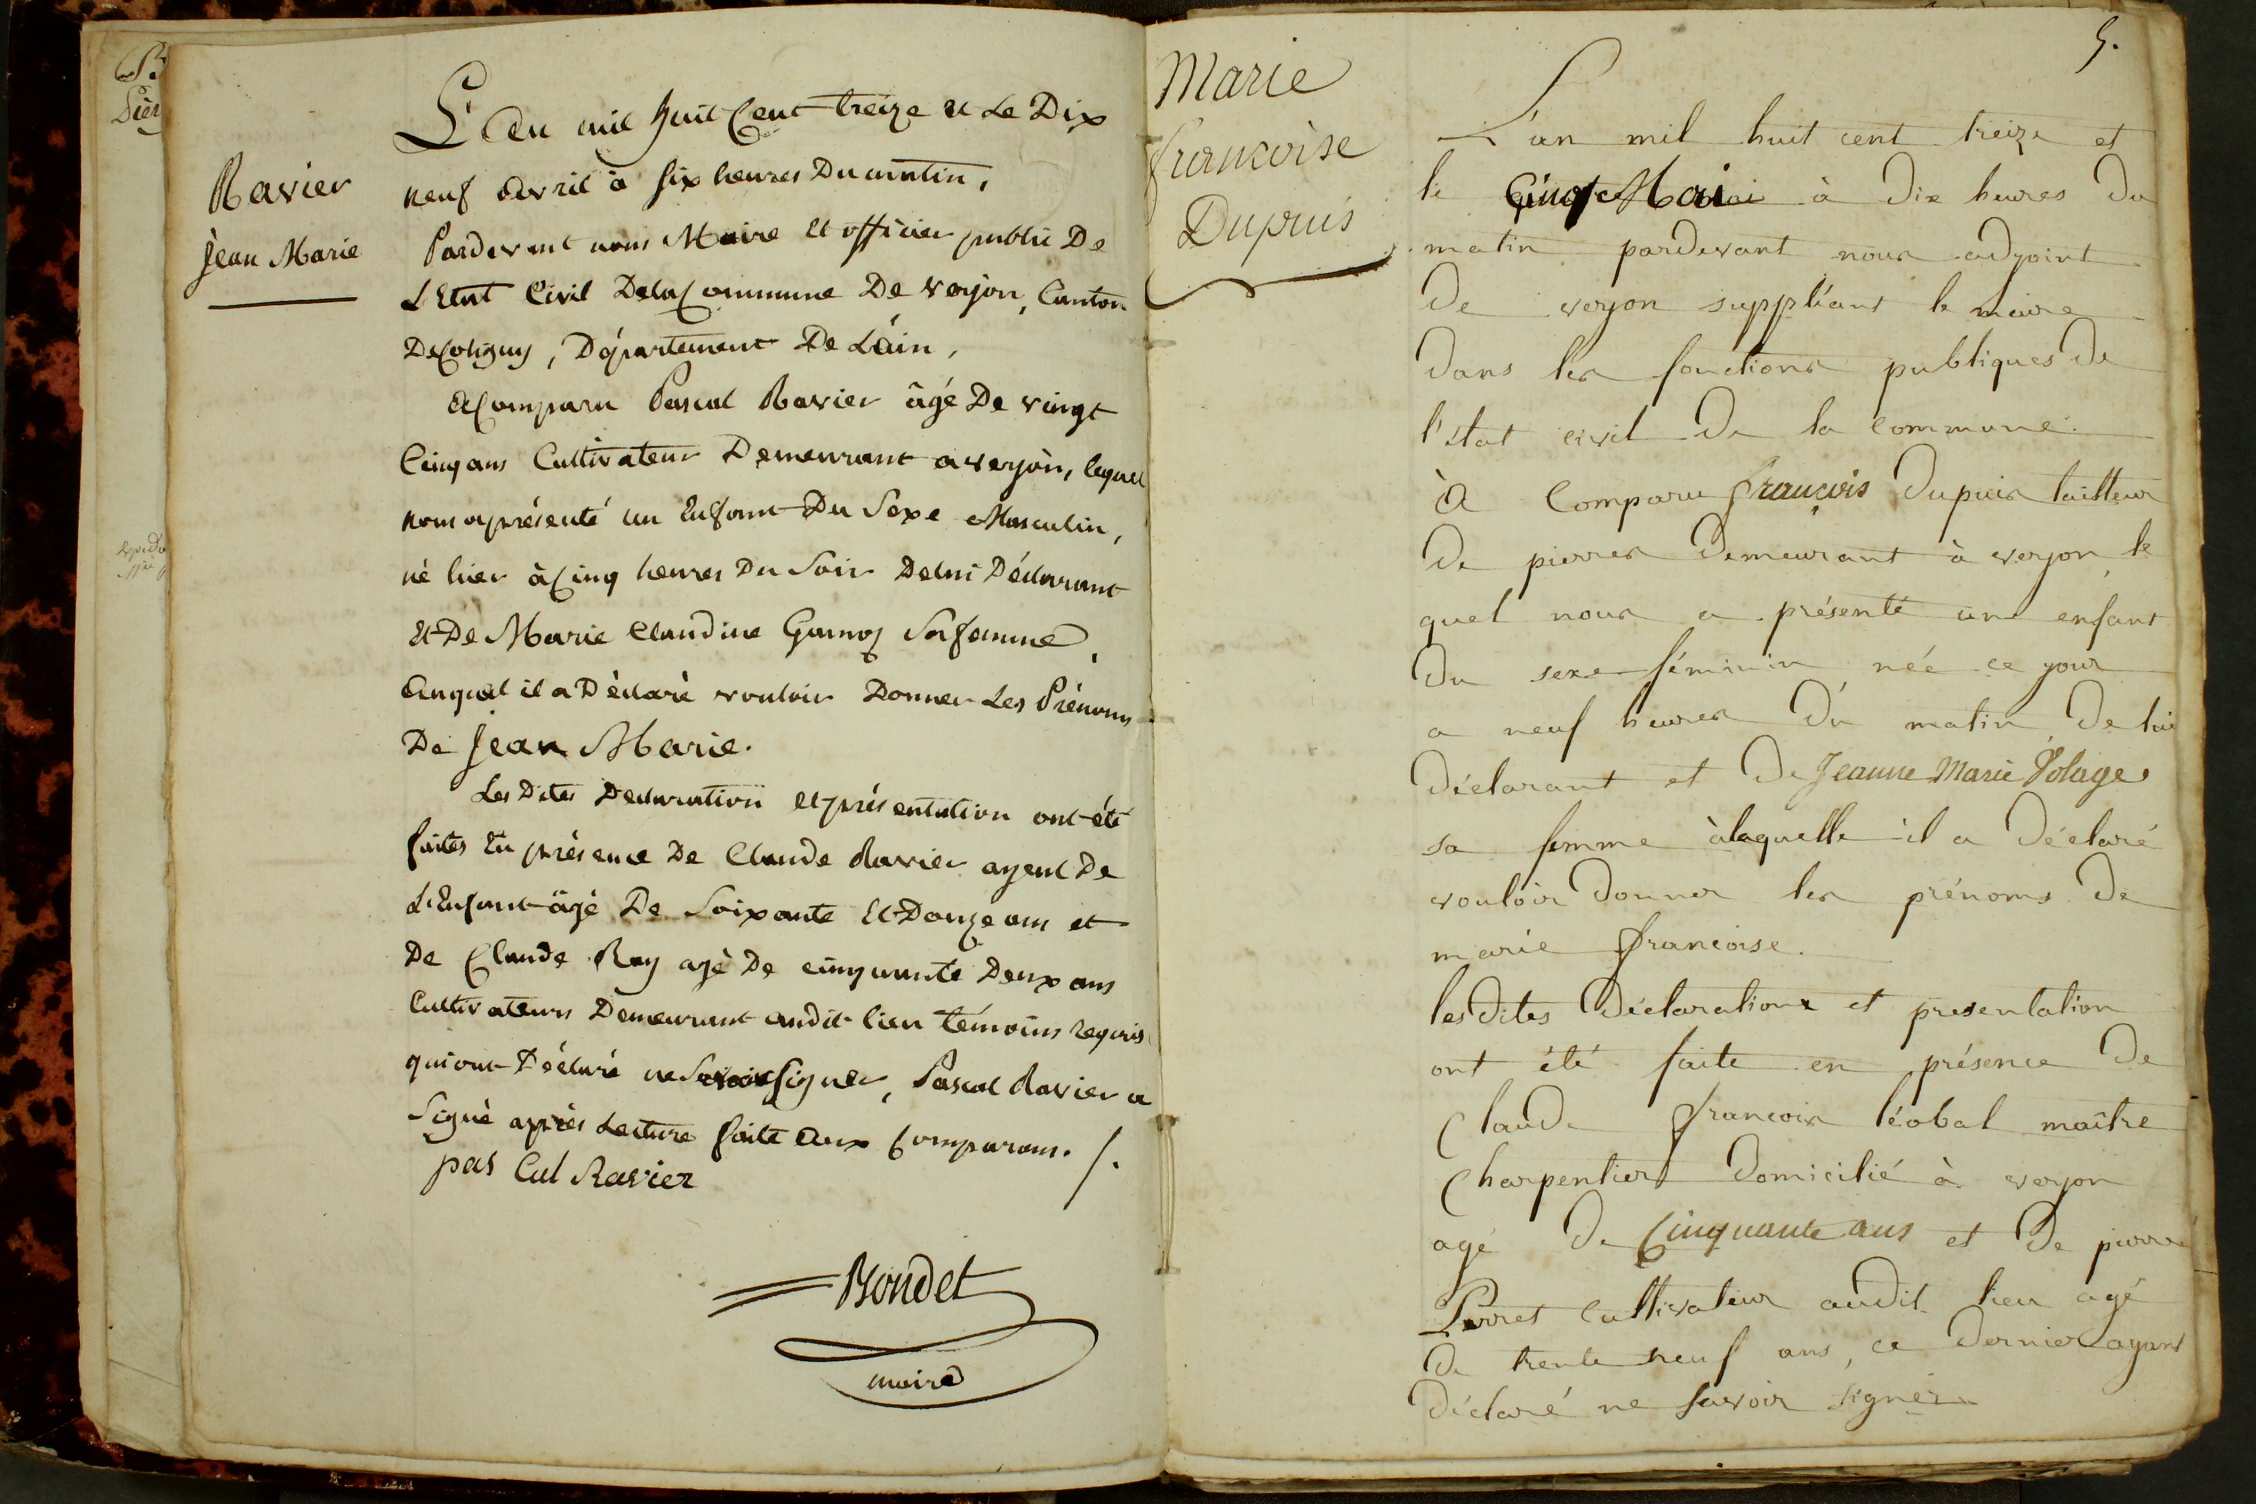 Ravier
Jean Marie
L'an mil huit Cent treize et Le Dix
neuf Avril à six heures Du matin,
Pardevant nous Maire et officier public De
L'Etat Civil DelaCommune De verjon, Canton
DeColigny, Département De L'ain,
AComparu Pascal Ravier âgé De vingt
Cinq ans Cultivateur Demeurant a verjon, lequel
nous aprésenté un Enfant Du Sexe Masculin,
né hier à Cinq heures Du Soir Delui Déclarant
Et De Marie Claudine Sa femme,
Auquel il a Déclaré vouloir Donner Les Prénoms
De Jean Marie.
Les Dites Declaration et présentation ont été
faites En présence De Claude Ravier ayeul De
L'Enfant âgé De Soixante Et Douze ans et
De Claude Rey agé De cinquante Deux ans
Cultivateurs Demeurant audit lieu témoins requis
qui ont Déclaré ne Savoir Signer, Pascal Ravier a
Signé après Lecture faite Aux Comparans. /.
pas Cal Ravier
Bondet
maire
5.
Marie
francoise
Dupuis
L'an mil huit cent treize et
le Cinq Mai à dix heures du
matin pardevant nous adjoint
de verjon suppléant le maire
dans les fonctions publiques de
l'état civil de la commune
à Comparu françois dupuis tailleur
de pierres demeurant à verjon, le
quel nous a présenté un enfant
du sexe féminin née ce jour
a neuf heures du matin de lui
déclarant et de Jeanne Marie Volage
sa femme àlaquelle il a déclaré
vouloir donner les prénoms de
marie francoise.
lesdites déclarations et presentation
ont été faite en présence de
Claude francois léobal maître
Charpentier domicilié à verjon
agé de Cinquante ans et de pierre
Perret cultivateur audit lieu agé
de trente neuf ans, ce dernier ayant
déclaré ne savoir signer